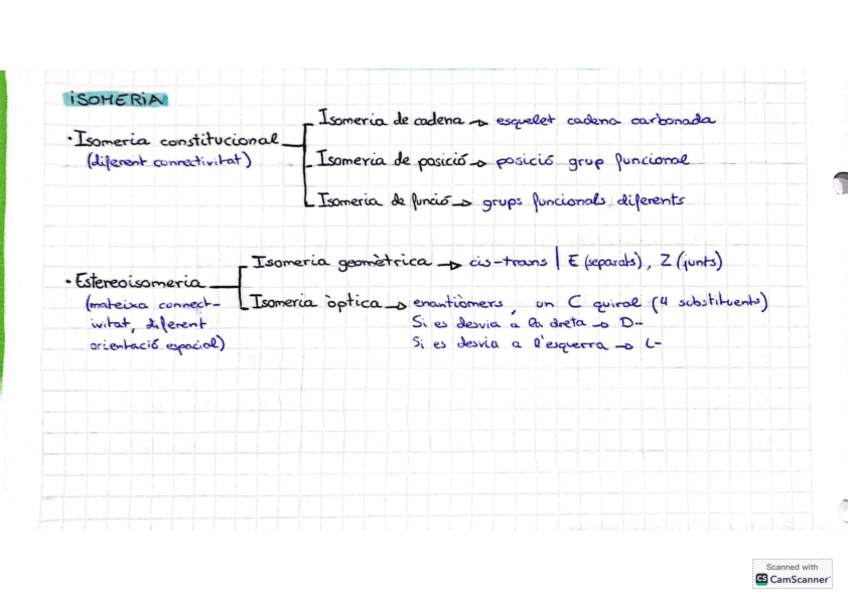 ISOMERIA
Isomeria de cadena → esquelet cadena carbonada
· Isomeria constitucional
(diferent connectivitat)
Isomeria de posició → posició grup funcional
Isomeria de funció → grups funcionals diferents
Isomeria geomètrica → cis-trans | E (separats), Z (junts)
· Estereoisomeria
Isomeria òptica → enantiòmers, un C quiral (4 substituents)
(mateixa connect-
ivitat, diferent
orientació espacial)
Si es desvia a la dreta → D-
Si es desvia a l'esquerra → L-
Scanned with
CS CamScanner